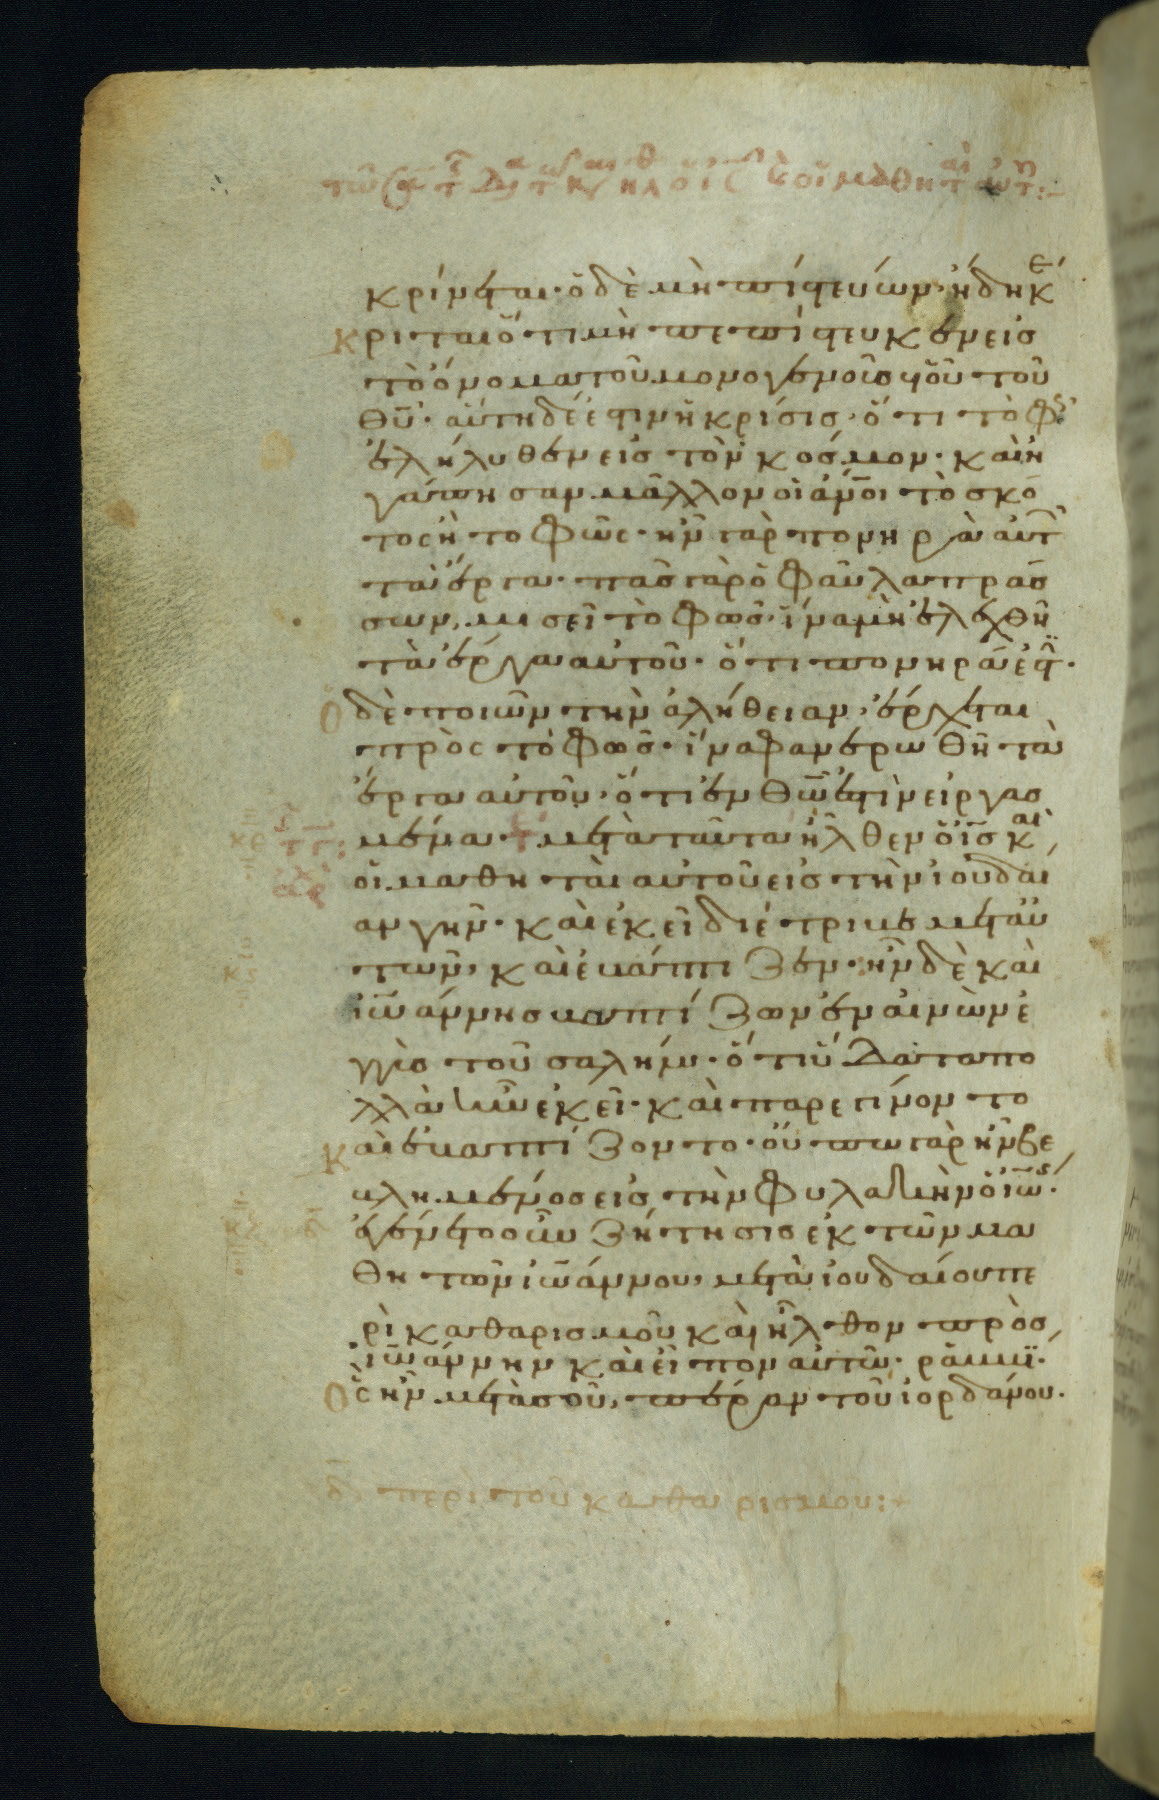 κρίνεται· ὁ δὲ μὴ πιστεύων, ἤδη κέ
κριται ὅτι μὴ πεπίστευκεν εἰσ
τὸ ὄνομα τοῦ μονογενοῦσ υἱοῦ τοῦ
θ̅υ̅· αὕτη δέ ἐστιν ἡ κρίσις, ὅτι τὸ φῶσ
ἐλήλυθεν εἰσ τὸν κόσμον· καὶ ἠ
γάπησαν μᾶλλον οἱ ἄν̅οι τὸ σκό
τος ἢ το φῶς· ἦν γὰρ πονηρὰ αὐτῶν
τὰ ἔργα· πᾶσ γὰρ ὁ φαῦλα πράσ
σων, μισεῖ τὸ φῶσ, ἵνα μὴ ἐλεχθῆ
τὰ ἔργα αὐτοῦ· ὅτι πονηρά ἐστϊ·
Ὁ δὲ ποιῶν τὴν ἀλήθειαν, ἔρχεται
πρὸς τὸ φῶσ· ἵνα φανερωθῆ τὰ
ἔργα αὐτοῦ, ὅτι ἐν θ̅ω̅ ἐστὶν εἰργασ
μένα· μετὰ ταῦτα ἦλθεν ὁ ι̅σ̅ καὶ
οἱ μαθηταὶ αὐτοῦ εἰσ τὴν ἰουδαί
αν γῆν· καὶ ἐκεῖ διέτριβε μετ αὐ
τῶν, καὶ ἐβάπτιζεν· ἦν δὲ καὶ
ἰωάννησ βαπτίζων ἐν αἰνὼν ἐ
γγὺσ τοῦ σαλήμ· ὅτι ὕδατα πο
λλὰ ἦν ἐκεῖ· καὶ παρεγίνοντο
Καὶ ἐβαπτίζοντο· οὔπω γὰρ ἦν βε
βλημένοσ εἰσ τὴν φυλακὴν ὁ ἰω̅·
ἐγένετο οὖν ζήτησισ ἐκ τῶν μα
θητῶν ἰωάννου, μετὰ ἰουδαίου πε
ρὶ καθαρισμοῦ καὶ ἦλθον πρὸσ
ἰωάννην καὶ εἶπον αὐτῶ· ῥαββί·
Ὃς ἦν μετὰ σοῦ, πέραν τοῦ ἰορδάνου.
δ περὶ τοῦ καθαρισμοῦ:+